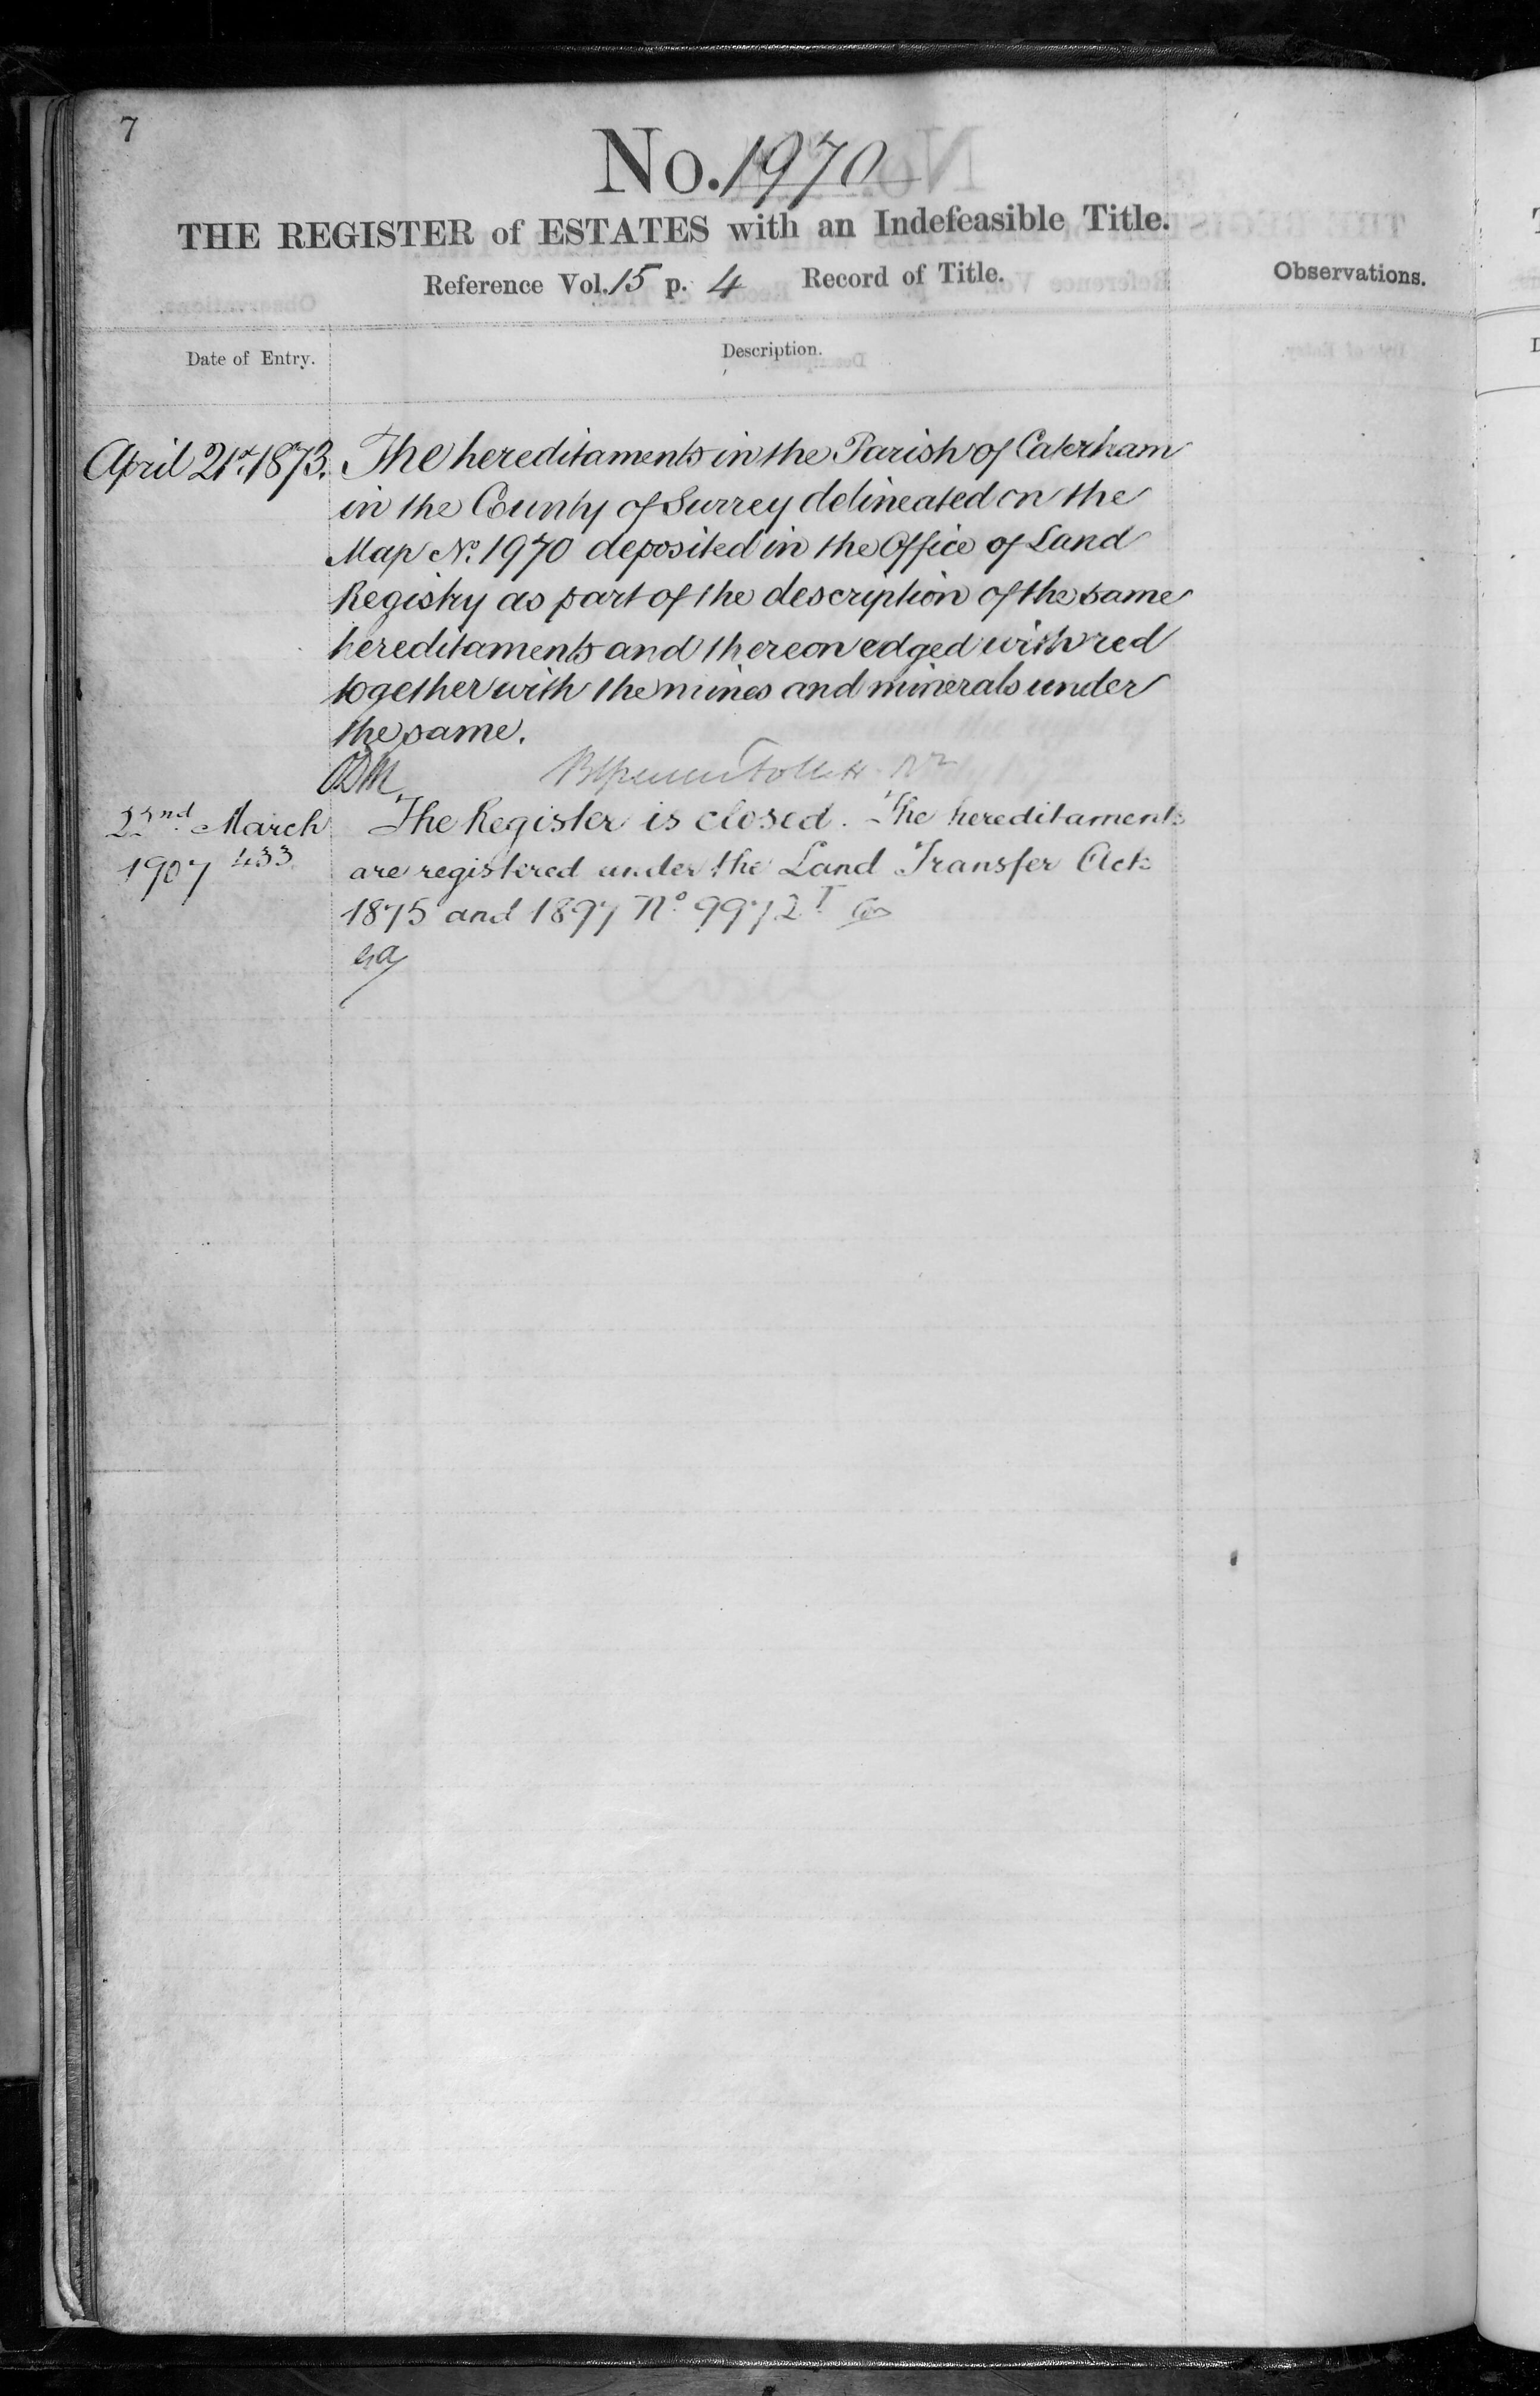 7
No. 1970
THE REGISTER of ESTATES with an Indefeasible Title.
Reference Vol. 15 p. 4 Record of Title.
Observations.
Date of Entry.
Description.
April 21st 1873.
The hereditaments in the Parish of Caterham
in the County of Surrey delineated on the
Map No. 1970 deposited in the Office of Land
Registry as part of the description of the same
hereditaments and thereon edged with red
together with the mines and minerals under
the same.
March
1907 433
The Register is closed. The hereditaments
are registered under the Land Transfer Acts
1875 and 1897 No 9972